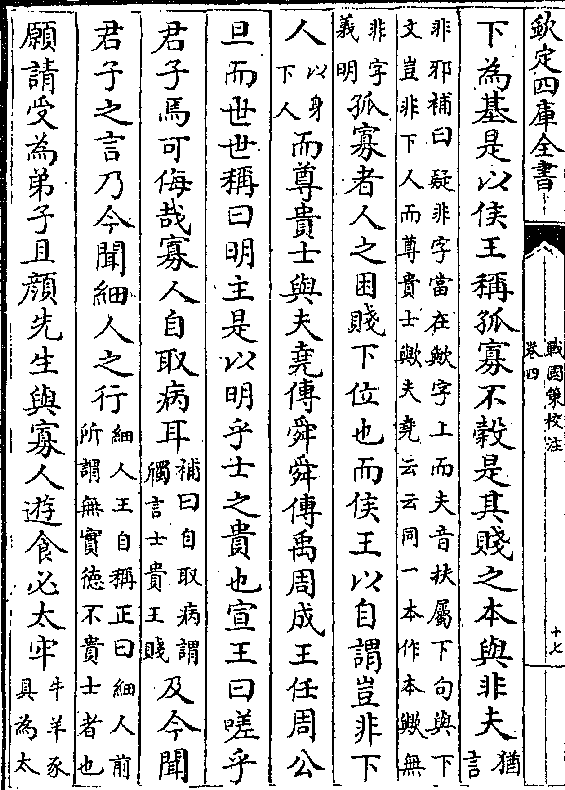 欽定四庫全書
戰國策校注
卷四
十七
下為基是以侯王稱孤寡不穀是其賤之本與非夫猶言
非邪補曰疑非字當在歟字上而夫音扶屬下句與下
文豈非下人而尊貴士歟夫堯云云同一本作本歟無
非字義明孤寡者人之困賤下位也而侯王以自謂豈非下
人以身下人而尊貴士與夫堯傳舜舜傳禹周成王任周公
旦而世世稱曰明主是以明乎士之貴也宣王曰嗟乎
君子焉可侮哉寡人自取病耳補曰自取病謂斶言士貴王賤及今聞
君子之言乃今聞細人之行細人王自稱正曰細人前所謂無實德不貴士者也
願請受為弟子且顏先生與寡人遊食必太牢牛羊豕具為太